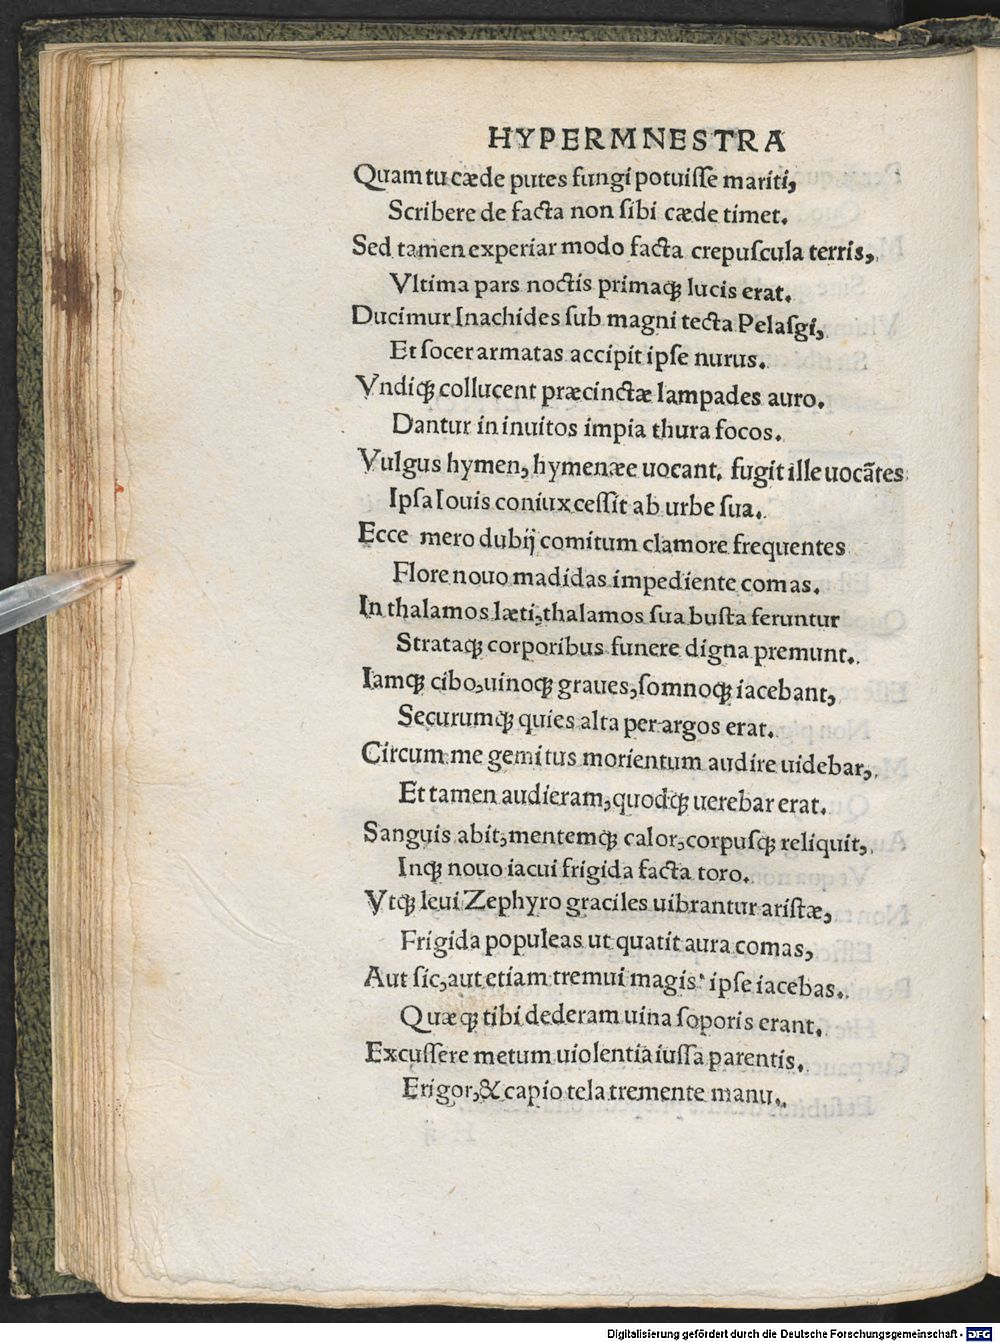 HYPERMNESTRA
Quam tu cæde putes fungi potuiſſe mariti,
Scribere de facta non ſibi cæde timet.
Sed tamen experiar modo facta crepuſcula terris,
Vltima pars noctis primaqꝫ lucis erat.
Ducimur Inachides ſub magni tecta Pelaſgi,
Et ſocer armatas accipit ipſe nurus.
Vndiqꝫ collucent præcinctæ lampades auro.
Dantur in inuitos impia thura focos.
Vulgus hymen, hymenæe uocant. fugit ille uocãtes
Ipſa Iouis coniux ceſſit ab urbe ſua.
Ecce mero dubij comitum clamore frequentes
Flore nouo madidas impediente comas.
In thalamos læti, thalamos ſua buſta feruntur
Strataqꝫ corporibus funere digna premunt.
Iamqꝫ cibo, uinoqꝫ graues, ſomnoqꝫ iacebant,
Securumqꝫ quies alta per argos erat.
Circum me gemitus morientum audire uidebar,
Et tamen audieram, quodqꝫ uerebar erat.
Sanguis abit, mentemqꝫ calor, corpuſqꝫ reliquit,
Inqꝫ nouo iacui frigida facta toro.
Vtqꝫ leui Zephyro graciles uibrantur ariſtæ,
Frigida populeas ut quatit aura comas,
Aut ſic, aut etiam tremui magis. ipſe iacebas.
Quæqꝫ tibi dederam uina ſoporis erant.
Excuſſere metum uiolentia iuſſa parentis.
Erigor, & capio tela tremente manu.
Digitalisierung gefördert durch die Deutsche Forschungsgemeinschaft - DFG